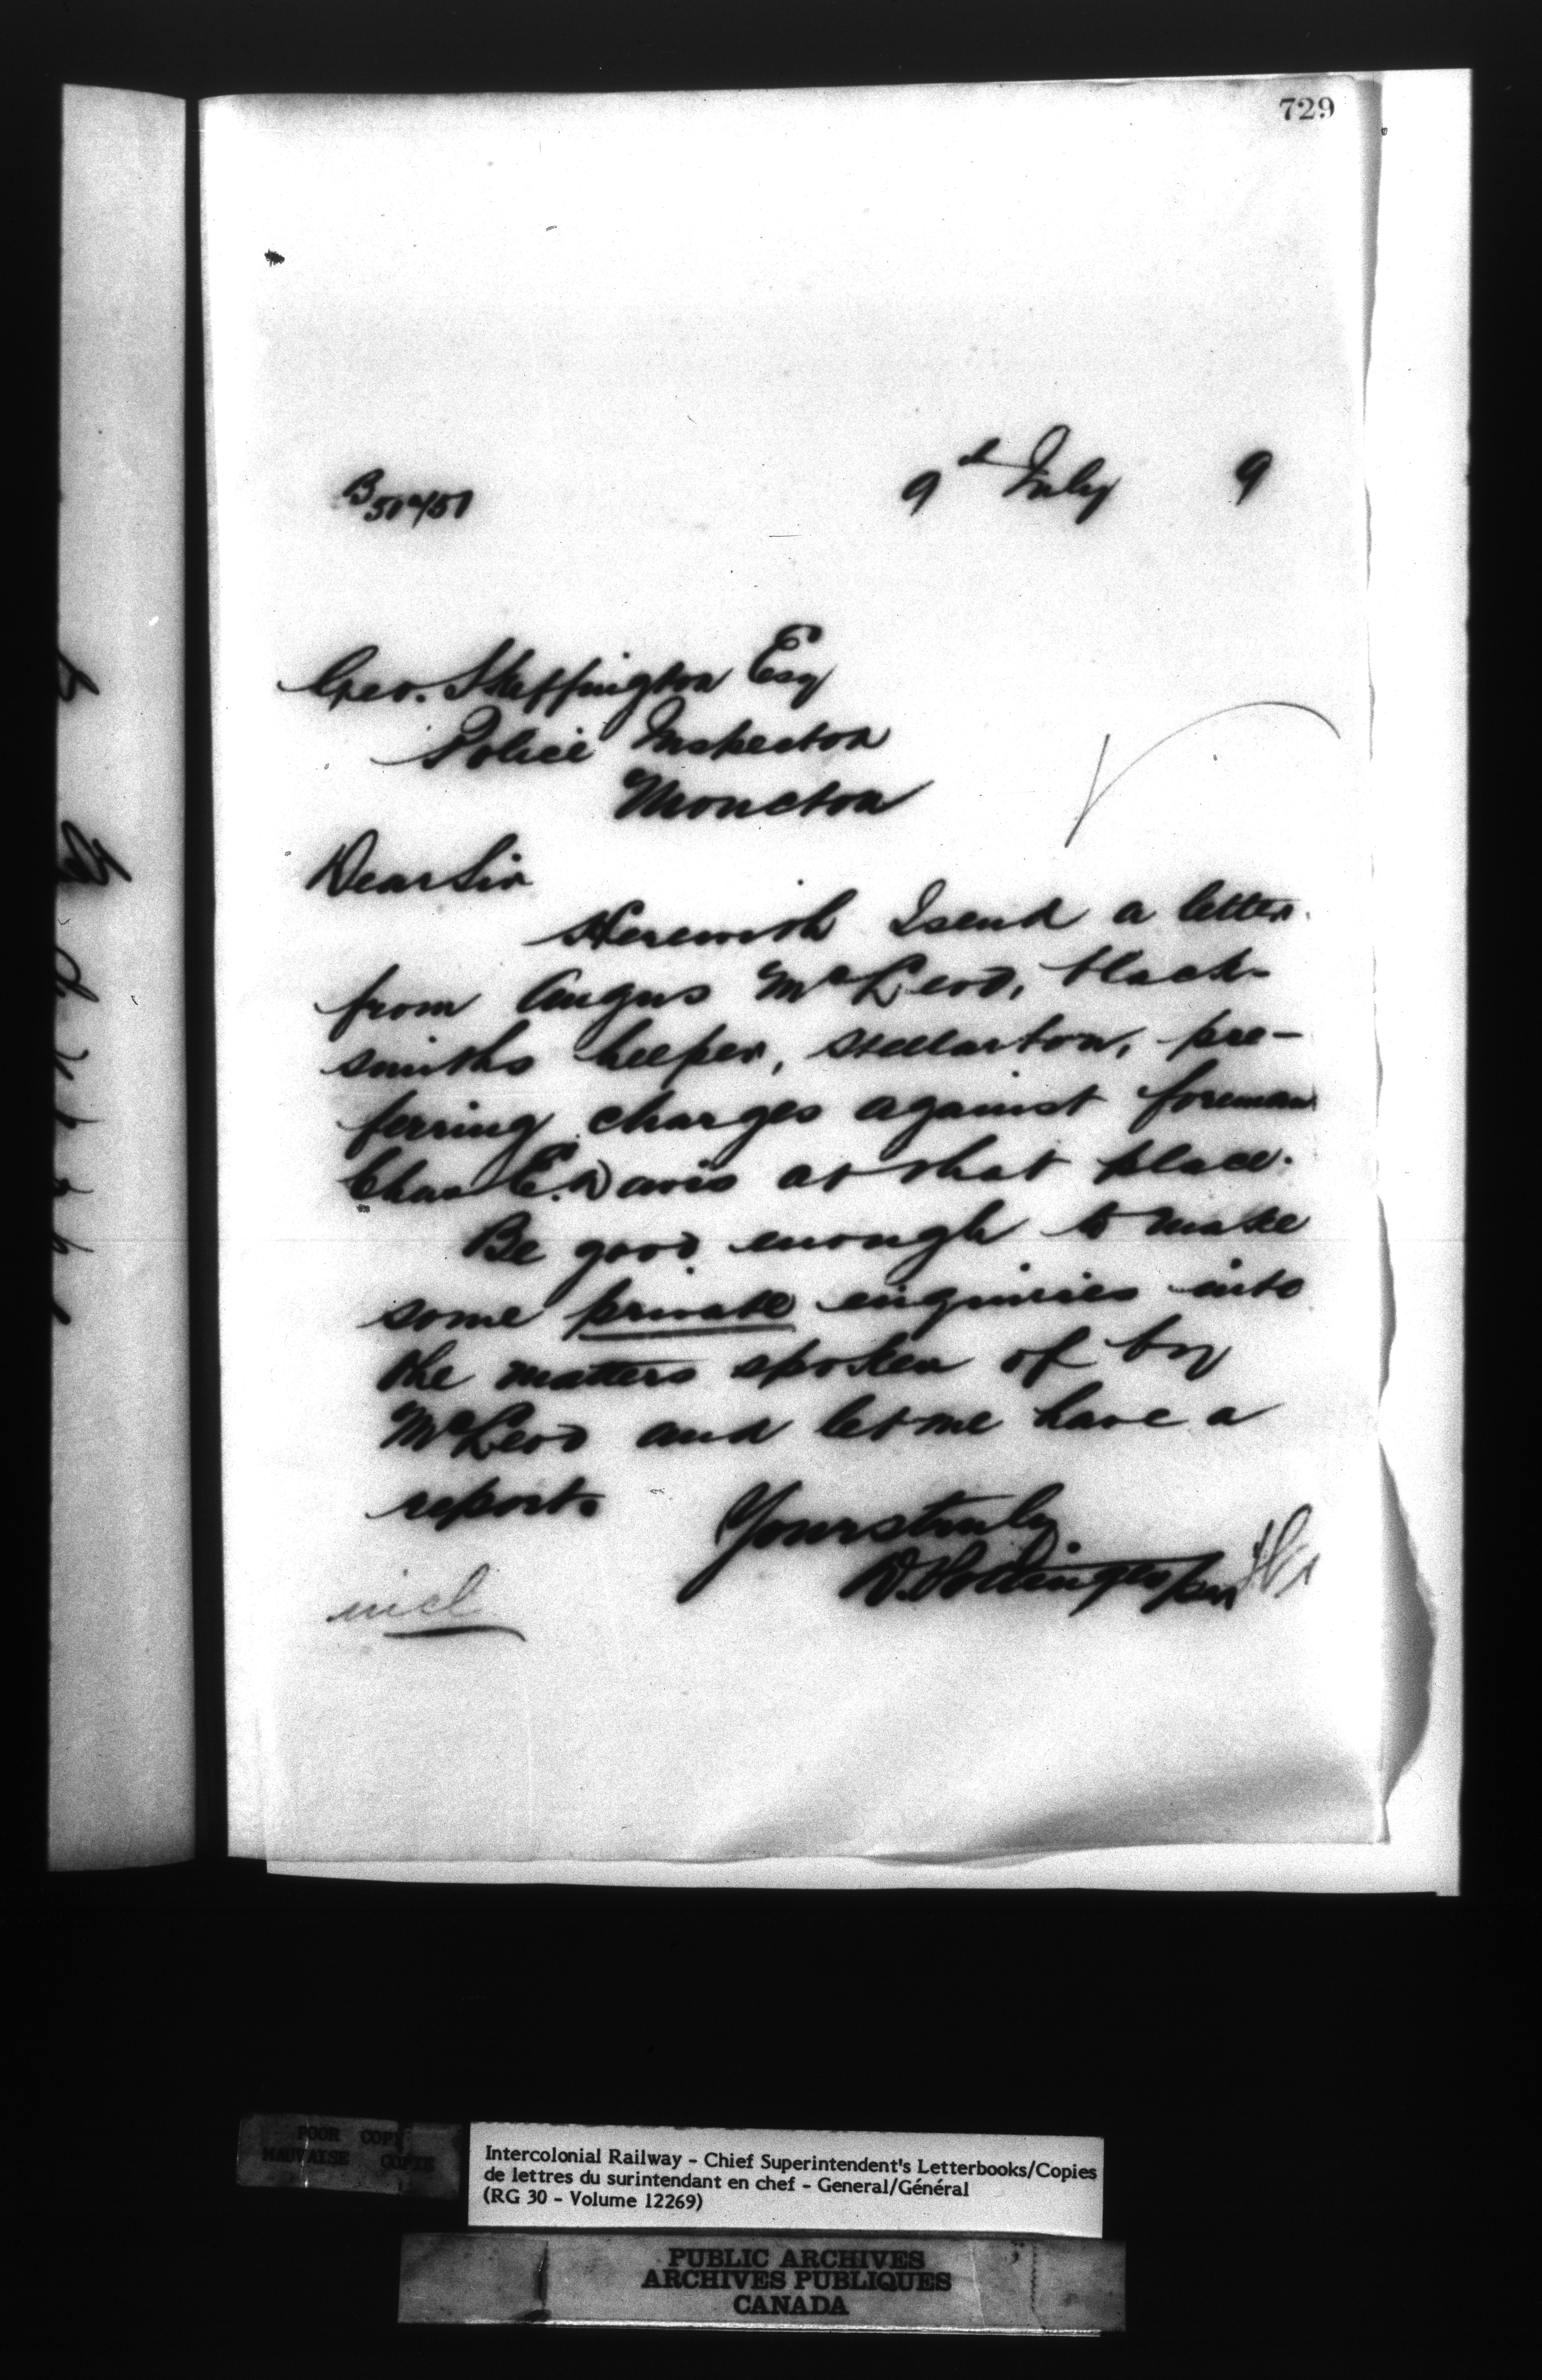 729
9th July 9
Geo. Skeffington Esq
Police Inspector
Moncton
Dear Sir
Herewith I send a letter
from Angus McLeod, black-
smiths helper, Stellarton, pre-
ferring charges against foreman
Chas E. Davis at that place.
Be good enough to make
some private enquiries into
the matters spoken of by
McLeod and let me have a
report.
Yours truly
D. Pottinger per
incl
POOR COPY
MAUVAISE COPIE
Intercolonial Railway - Chief Superintendent's Letterbooks/Copies
de lettres du surintendant en chef - General/Général
(RG 30 - Volume 12269)
PUBLIC ARCHIVES
ARCHIVES PUBLIQUES
CANADA